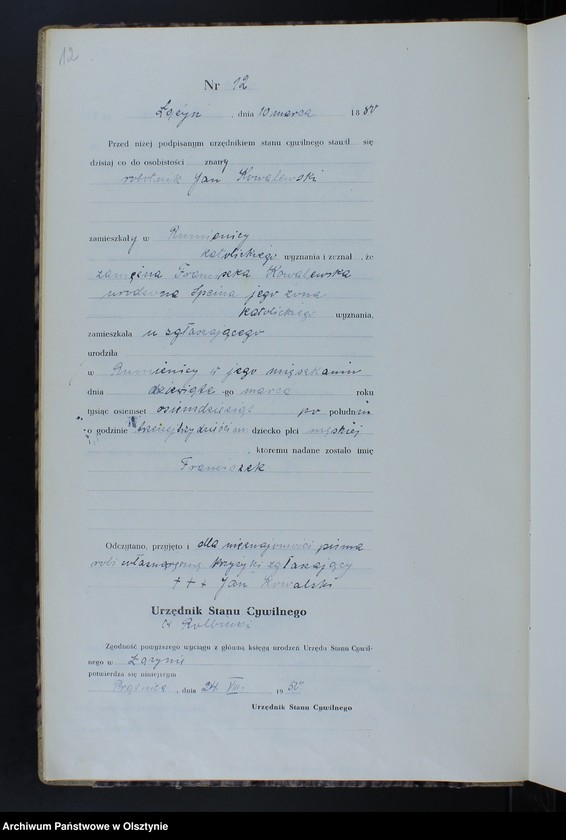 12
Nr 12
, dnia 10 marca 1880
Przed niżej podpisanym urzędnikiem stanu cywilnego stawił się
dzisiaj co do osobistości znany
robotnik Jan Kowalewski
zamieszkały w Rumienicy
katolickiego wyznania i zeznał, że
zamężna Franciszka Kowalewska
urodzona jego żona
katolickiego wyznania,
zamieszkała u zgłaszającego
urodziła
w Rumienicy w jego mieszkaniu
dnia dziewiąte -go marca roku
tysiąc osiemset osiemdziesiąt po południu
o godzinie dziecko płci męskiej
, któremu nadane zostało imię
Franciszek
Odczytano, przyjęto i dla nieznajomości pisma
krzyżyki zgłaszający
+ + + Jan Kowalski
Urzędnik Stanu Cywilnego
Zgodność powyższego wyciągu z główną księgą urodzeń Urzędu Stanu Cywil-
nego w
potwierdza się niniejszym
, dnia 24 VIII 1950
Urzędnik Stanu Cywilnego
Archiwum Państwowe w Olsztynie